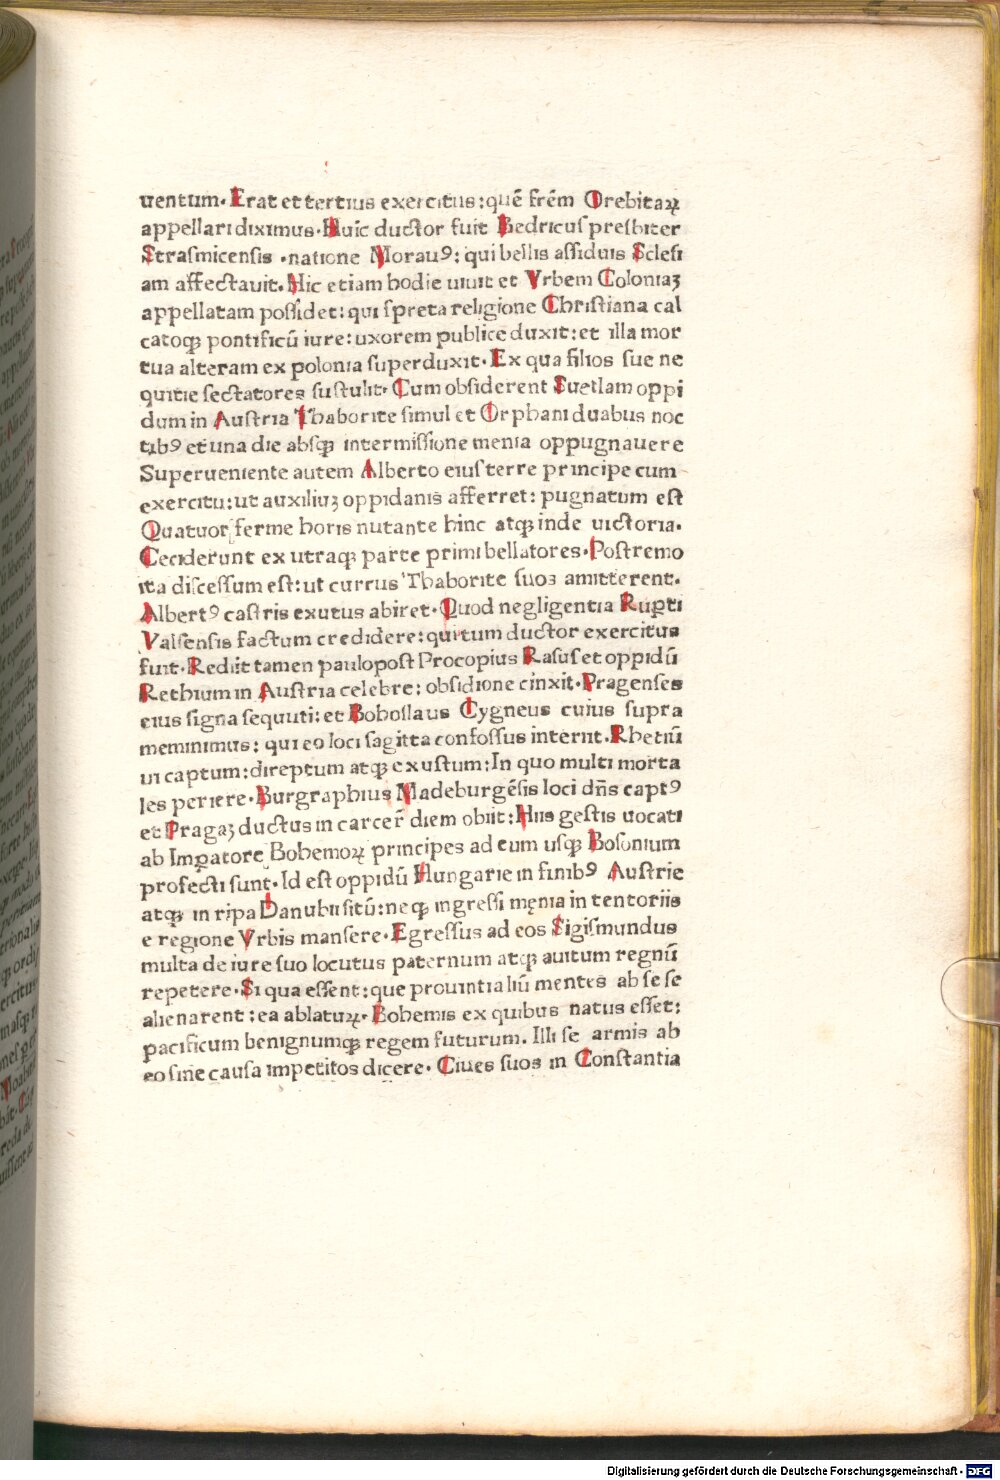 uentum. Erat et tertius exercitus: quē frēm Orebitaꝝ
appellari diximus. Huic ductor fuit Bedricus presbiter
Strasmicensis . natione Morauꝰ: qui bellis assiduis Sclesi
am affectauit. Hic etiam hodie uiuit et Vrbem Coloniaꝫ
appellatam possidet: qui spreta religione Christiana cal
catoqꝫ pontificū iure: uxorem publice duxit: et illa mor
tua alteram ex polonia superduxit. Ex qua filios sue ne
quitie sectatores sustulit. Cum obsiderent Suetlam oppi
dum in Austria Thaborite simul et Orphani duabus noc
tibꝰ et una die absqꝫ intermissione menia oppugnauere
Superueniente autem Alberto eius terre principe cum
exercitu: ut auxiliuꝫ oppidanis afferret: pugnatum est
Quatuor ferme horis nutante hinc atqꝫ inde uictoria.
Ceciderunt ex utraqꝫ parte primi bellatores. Postremo
ita discessum est: ut currus Thaborite suos amitterent.
Albertꝰ castris exutus abiret. Quod negligentia Ruꝑti
Valsensis factum credidere: qui tum ductor exercitus
fuit. Rediit tamen paulopost Procopius Rasus et oppidū
Rethium in Austria celebre: obsidione cinxit. Pragenses
eius signa sequuti: et Boboslaus Cygneus cuius supra
meminimus: qui eo loci sagitta confossus interiit. Rhetiū
ui captum: direptum atqꝫ exustum: In quo multi morta
les periere. Burgraphius Madeburgēsis loci dn̄s captꝰ
et Pragaꝫ ductus in carcer̄ diem obiit: Hiis gestis uocati
ab Imꝑatore Bohemoꝝ principes ad eum usqꝫ Bosonium
profecti sunt. Id est oppidū Hungarie in finibꝰ Austrie
atqꝫ in ripa Danubii sitū: neqꝫ ingressi męnia in tentoriis
e regione Vrbis mansere. Egressus ad eos Sigismundus
multa de iure suo locutus paternum atqꝫ auitum regnū
repetere. Si qua essent: que prouintialiū mentes ab se se
alienarent: ea ablatuꝝ. Bohemis ex quibus natus esset:
pacificum benignumqꝫ regem futurum. Illi se armis ab
eo sine causa impetitos dicere. Ciues suos in Constantia
Digitalisierung gefördert durch die Deutsche Forschungsgemeinschaft - DFG